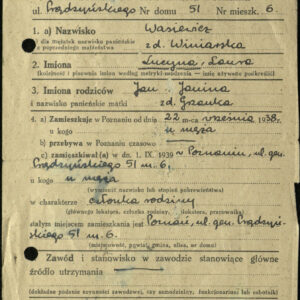 ul. Prądzyńskiego Nr domu 51 Nr mieszk. 6.
1. a) Nazwisko Wasiewicz
b) dla mężatek nazwisko panieńskie
z poprzedniego małżeństwa zd. Winiarska
2. Imiona Lucyna, Laura
(kolejność i pisownia imion według metryki urodzenia — imię używane podkreślić)
3. Imiona rodziców Jan - Janina
i nazwisko panieńskie matki zd.
4. a) Zamieszkuje w Poznaniu od dnia 22-go września 1938 r.
u kogo u męża
b) przebywa w Poznaniu czasowo
c) zamieszkiwał(a) w dn. 1. IX. 1939 w Poznaniu, ul. gen.
Prądzyńskiego 51 m. 6,
u kogo u męża
(wymienić nazwisko lub stopień pokrewieństwa)
w charakterze członka rodziny
(głównego lokatora, członka rodziny, sublokatora, pracownika)
stałym miejscem zamieszkania jest Poznań, ul. gen. Prądzyń-
skiego 51 m. 6.
(miejscowość, powiat, gmina, ulica, nr domu)
5. Zawód i stanowisko w zawodzie stanowiące główne
źródło utrzymania
(dokładne podanie czynności zawodowej, czy samodzielny,